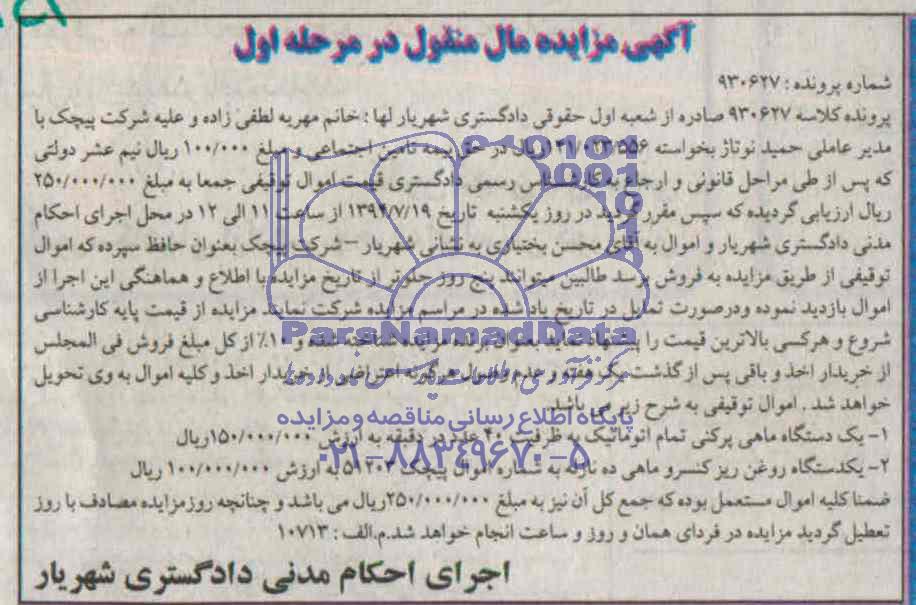 آگهی مزایده مال منقول در مرحله اول
شماره پرونده : ۹۳۰۶۲۷
پرونده کلاسه ۹۳۰۶۲۷ صادره از شعبه اول حقوقی دادگستری شهریار لها : خانم مهریه لطفی زاده و علیه شرکت پیچک با
مدیر عاملی حمید نوتاژ بخواسته ۱۴۱/۰۲۳/۵۵۶ ریال در حق بیمه تامین اجتماعی و مبلغ ۱۰۰/۰۰۰ ریال نیم عشر دولتی
که پس از طی مراحل قانونی و ارجاع به کارشناس رسمی دادگستری قیمت اموال توقیفی جمعا به مبلغ ۲۵۰/۰۰۰/۰۰۰
ریال ارزیابی گردیده که سپس مقرر گردید در روز یکشنبه تاریخ ۱۳۹۴/۷/۱۹ از ساعت ۱۱ الی ۱۲ در محل اجرای احکام
مدنی دادگستری شهریار و اموال به آقای محسن بختیاری به نشانی شهریار – شرکت پیچک بعنوان حافظ سپرده که اموال
توقیفی از طریق مزایده به فروش برسد طالبین میتوانند پنج روز جلوتر از تاریخ مزایده با اطلاع و هماهنگی این اجرا از
اموال بازدید نموده ودرصورت تمایل در تاریخ یاد شده در مراسم مزایده شرکت نمایند مزایده از قیمت پایه کارشناسی
شروع و هرکسی بالاترین قیمت را پیشنهاد نماید بعنوان برنده مزایده شناخته شده و ۱۰٪ از کل مبلغ فروش فی المجلس
از خریدار اخذ و باقی پس از گذشت یک هفته و عدم وصول هرگونه اعتراض از خریدار اخذ و کلیه اموال به وی تحویل
خواهد شد . اموال توقیفی به شرح زیر می باشد.
۱- یک دستگاه ماهی پرکنی تمام اتوماتیک به ظرفیت ۴۰ عدد در دقیقه به ارزش ۱۵۰/۰۰۰/۰۰۰ریال
۲- یکدستگاه روغن ریز کنسرو ماهی ده نازله به شماره اموال پیچک ۵۱۲۰۳ به ارزش ۱۰۰/۰۰۰/۰۰۰ ریال
ضمنا کلیه اموال مستعمل بوده که جمع کل آن نیز به مبلغ ۲۵۰/۰۰۰/۰۰۰ریال می باشد و چنانچه روزمزایده مصادف با روز
تعطیل گردید مزایده در فردای همان و روز و ساعت انجام خواهد شد.م.الف : ۱۰۷۱۳
اجرای احکام مدنی دادگستری شهریار
ParsNamadData
پایگاه اطلاع رسانی مناقصه و مزایده
۰۲۱-۸۸۳۴۹۶۷۰-۵